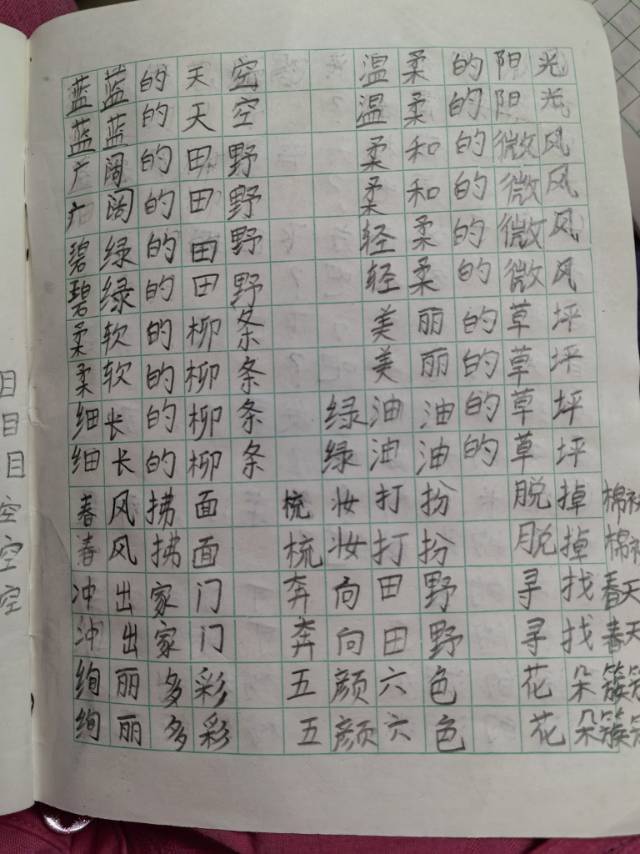 蓝蓝的天空 温柔的阳光
蓝蓝的天空 温柔的阳光
广阔的田野 柔和的微风
广阔的田野 柔和的微风
碧绿的田野 轻柔的微风
碧绿的田野 轻柔的微风
柔软的柳条 美丽的草坪
柔软的柳条 美丽的草坪
细长的柳条 绿油油的草坪
细长的柳条 绿油油的草坪
春风拂面 梳妆打扮 脱掉棉
春风拂面 梳妆打扮 脱掉棉
冲出家门 奔向田野 寻找春天
冲出家门 奔向田野 寻找春天
绚丽多彩 五颜六色 花朵簇
绚丽多彩 五颜六色 花朵簇
目
目
目
空
空
空